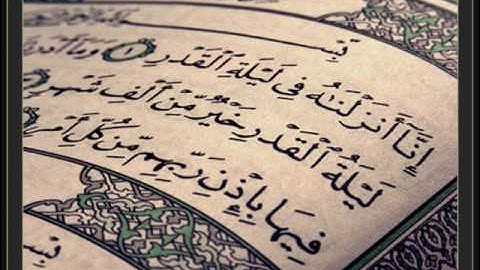 بِسْـ
إِنَّآ أَنزَلْنَٰهُ فِى لَيْلَةِ ٱلْقَدْرِ ١ وَمَآ أَدْرَ
لَيْلَةُ ٱلْقَدْرِ خَيْرٌ مِّنْ أَلْفِ شَهْرٍ
فِيهَا بِإِذْنِ رَبِّهِم مِّن كُلِّ أَمْرٍ
بِسْـ